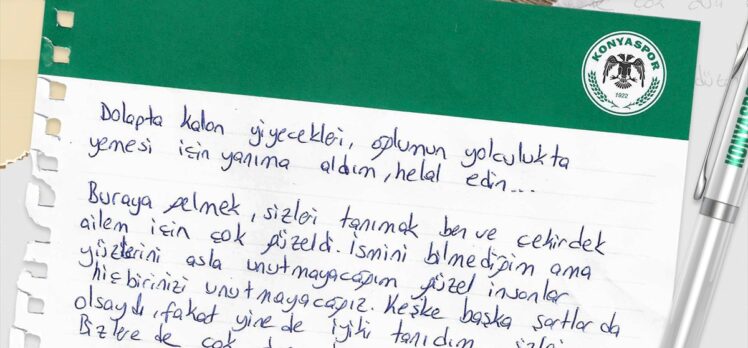 KONYASPOR
1922
Dolapta kalan yiyecekleri, oğlumun yolculukta
yemesi için yanıma aldım, helal edin...
Buraya gelmek, sizleri tanımak ben ve çekirdek
ailem için çok güzeldi. İsmini bilmediğim ama
yüzlerini asla unutmayacağım güzel insanlar
hiçbirinizi unutmayacağız. Keşke başka şartlarda
olsaydı, fakat yine de iyiki tanıdım sizleri
Bizlere de çok